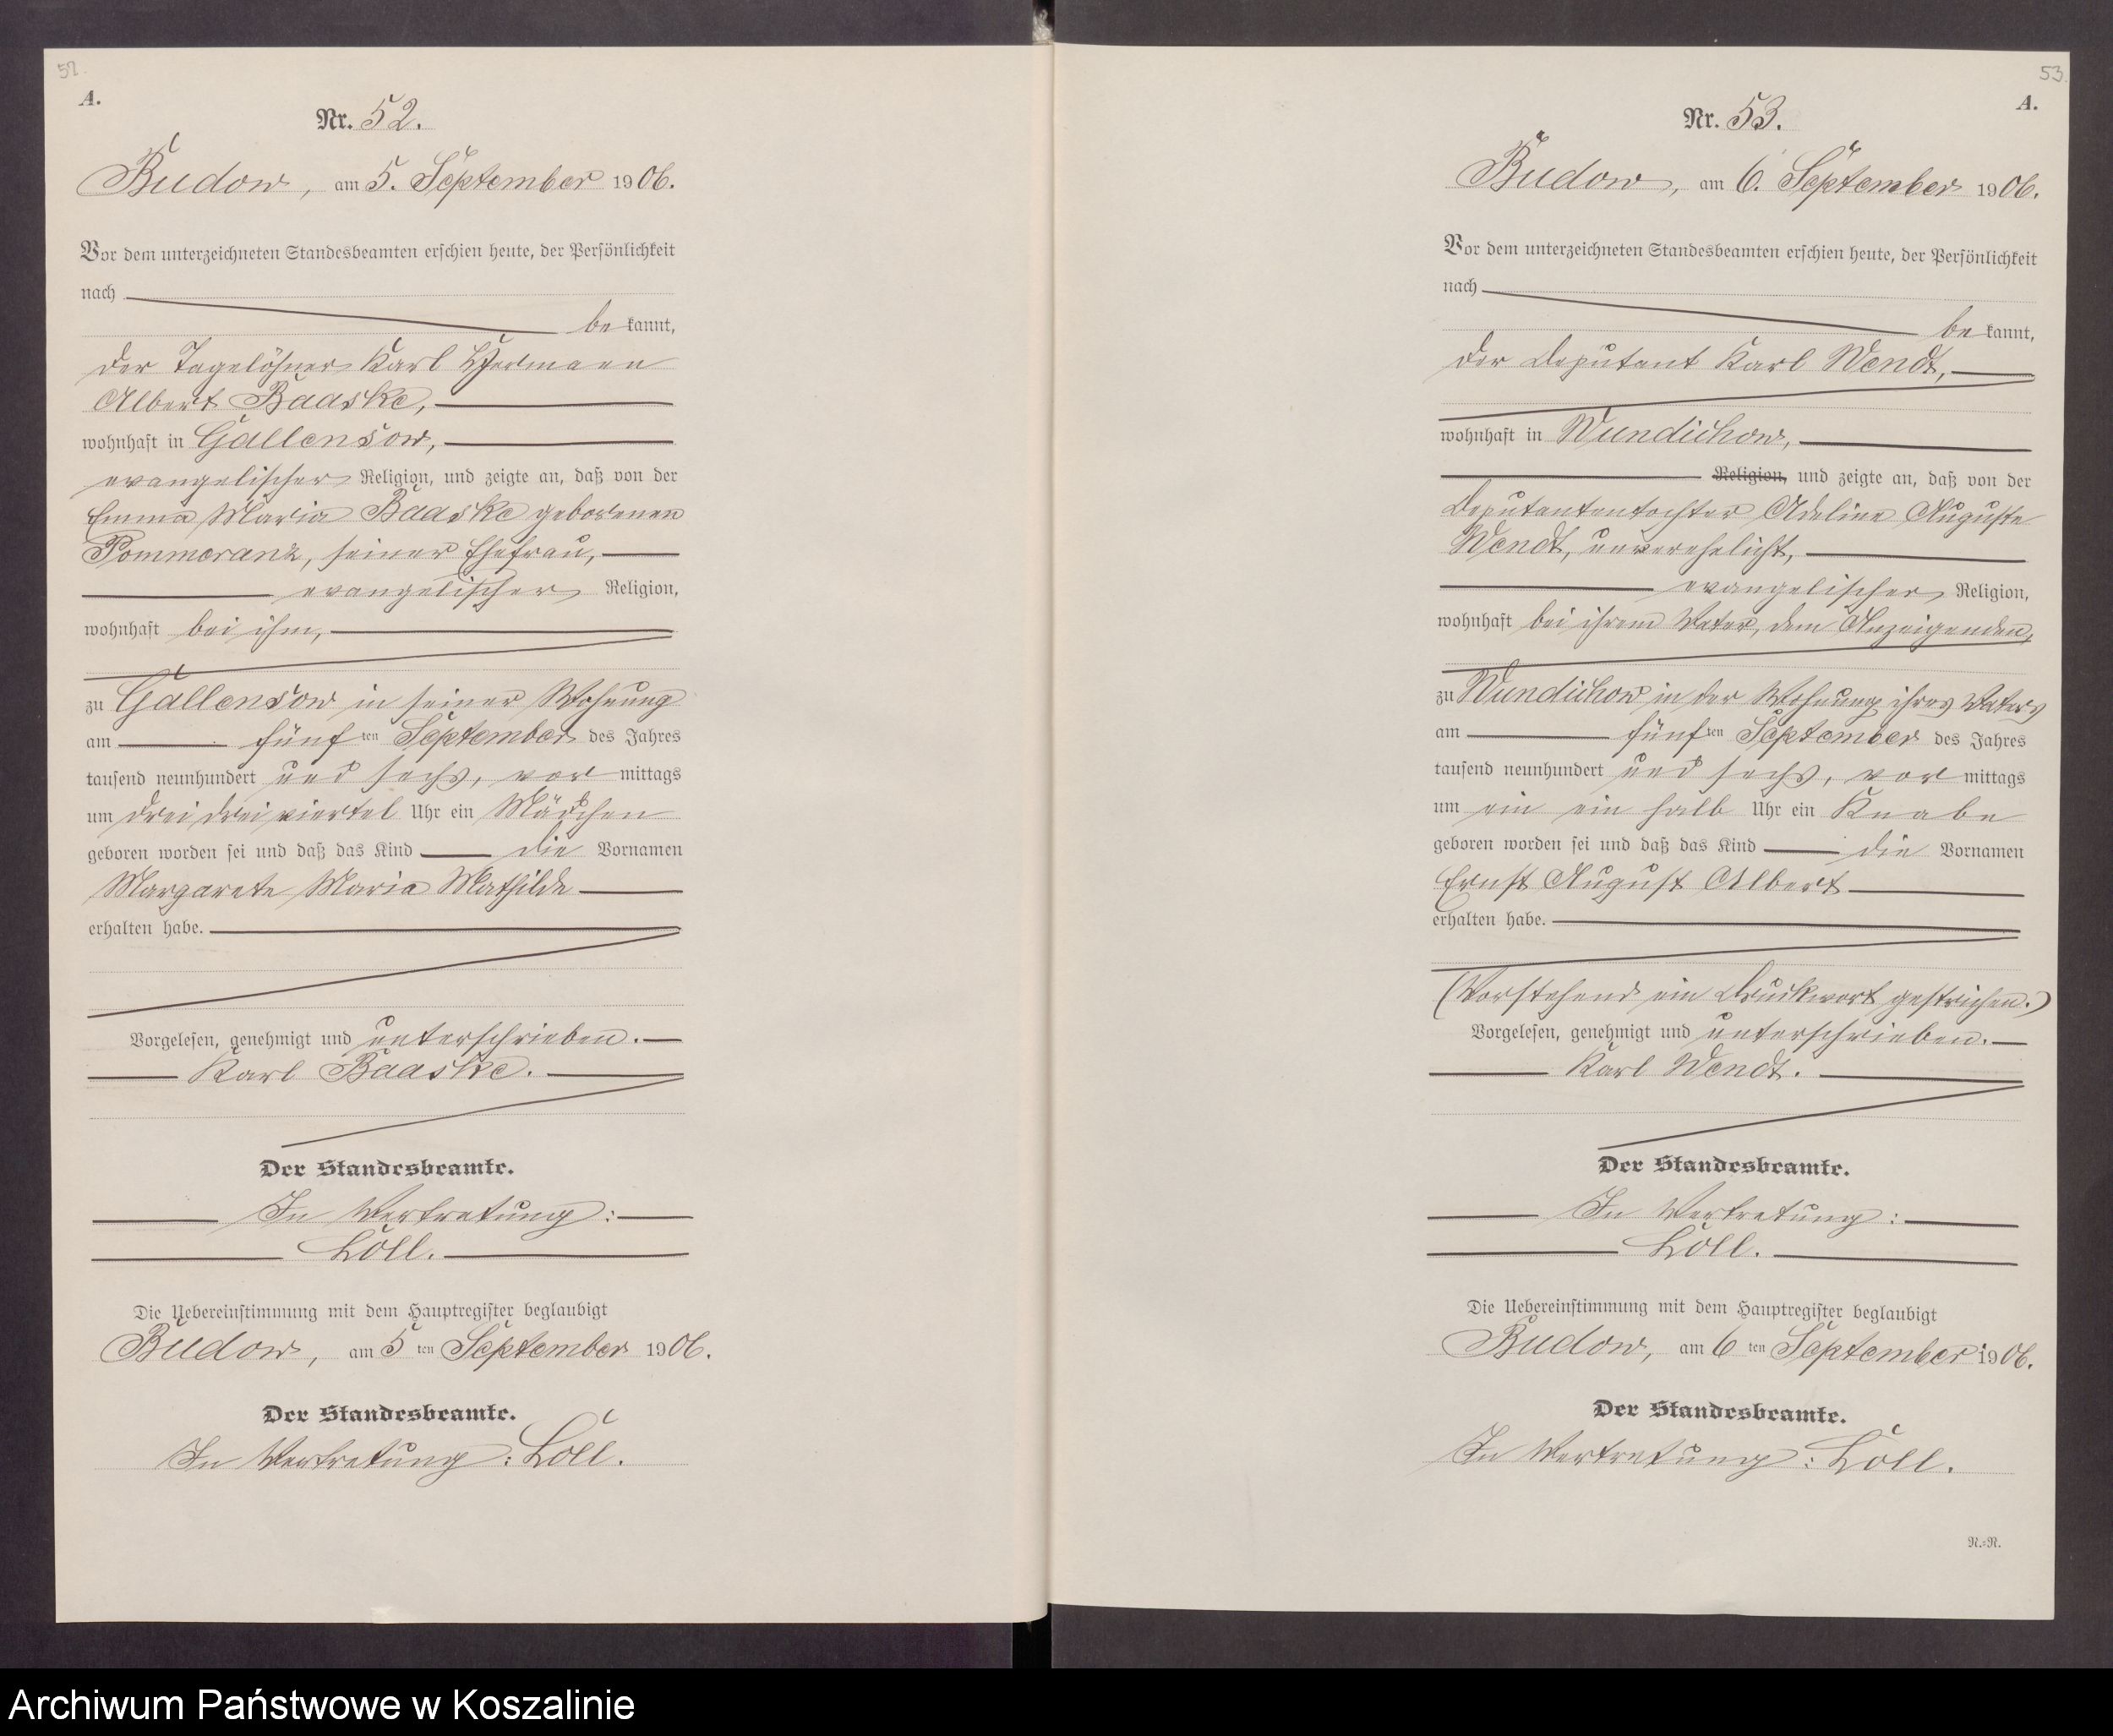 52.
A.
Nr. 52.
Budow, am 5. September 1906.
Vor dem unterzeichneten Standesbeamten erschien heute, der Persönlichkeit
nach
be kannt,
der Tagelöhner Karl Hermann
Albert Baaske,
wohnhaft in Gallensow,
evangelischer Religion, und zeigte an, daß von der
Emma Maria Baaske geborenen
Pommeranz, seiner Ehefrau,
evangelischer Religion,
wohnhaft bei ihm,
zu Gallensow in seiner Wohnung
am fünf ten September des Jahres
tausend neunhundert und sechs, vor mittags
um drei drei viertel Uhr ein Mädchen
geboren worden sei und daß das Kind die Vornamen
Margarete Maria Mathilde
erhalten habe.
Vorgelesen, genehmigt und unterschrieben.
Karl Baaske.
Der Standesbeamte.
In Vertretung:
Löll.
Die Uebereinstimmung mit dem Hauptregister beglaubigt
Budow, am 5 ten September 1906.
Der Standesbeamte.
In Vertretung: Löll.
53.
A.
Nr. 53.
Budow, am 6. September 1906.
Vor dem unterzeichneten Standesbeamten erschien heute, der Persönlichkeit
nach
be kannt,
der Deputant Karl Wendt,
wohnhaft in Wundichow,
Religion, und zeigte an, daß von der
Deputantentochter Adeline Auguste
Wendt, unverehelicht,
evangelischer Religion,
wohnhaft bei ihrem Vater, dem Anzeigenden,
zu Wundichow in der Wohnung ihres Vaters
am fünf ten September des Jahres
tausend neunhundert und sechs, vor mittags
um ein ein halb Uhr ein Knabe
geboren worden sei und daß das Kind die Vornamen
Ernst August Albert
erhalten habe.
(Vorstehend ein Druckwort gestrichen.)
Vorgelesen, genehmigt und unterschrieben.
Karl Wendt.
Der Standesbeamte.
In Vertretung:
Löll.
Die Uebereinstimmung mit dem Hauptregister beglaubigt
Budow, am 6 ten September 1906.
Der Standesbeamte.
In Vertretung: Löll.
N.=N.
Archiwum Państwowe w Koszalinie